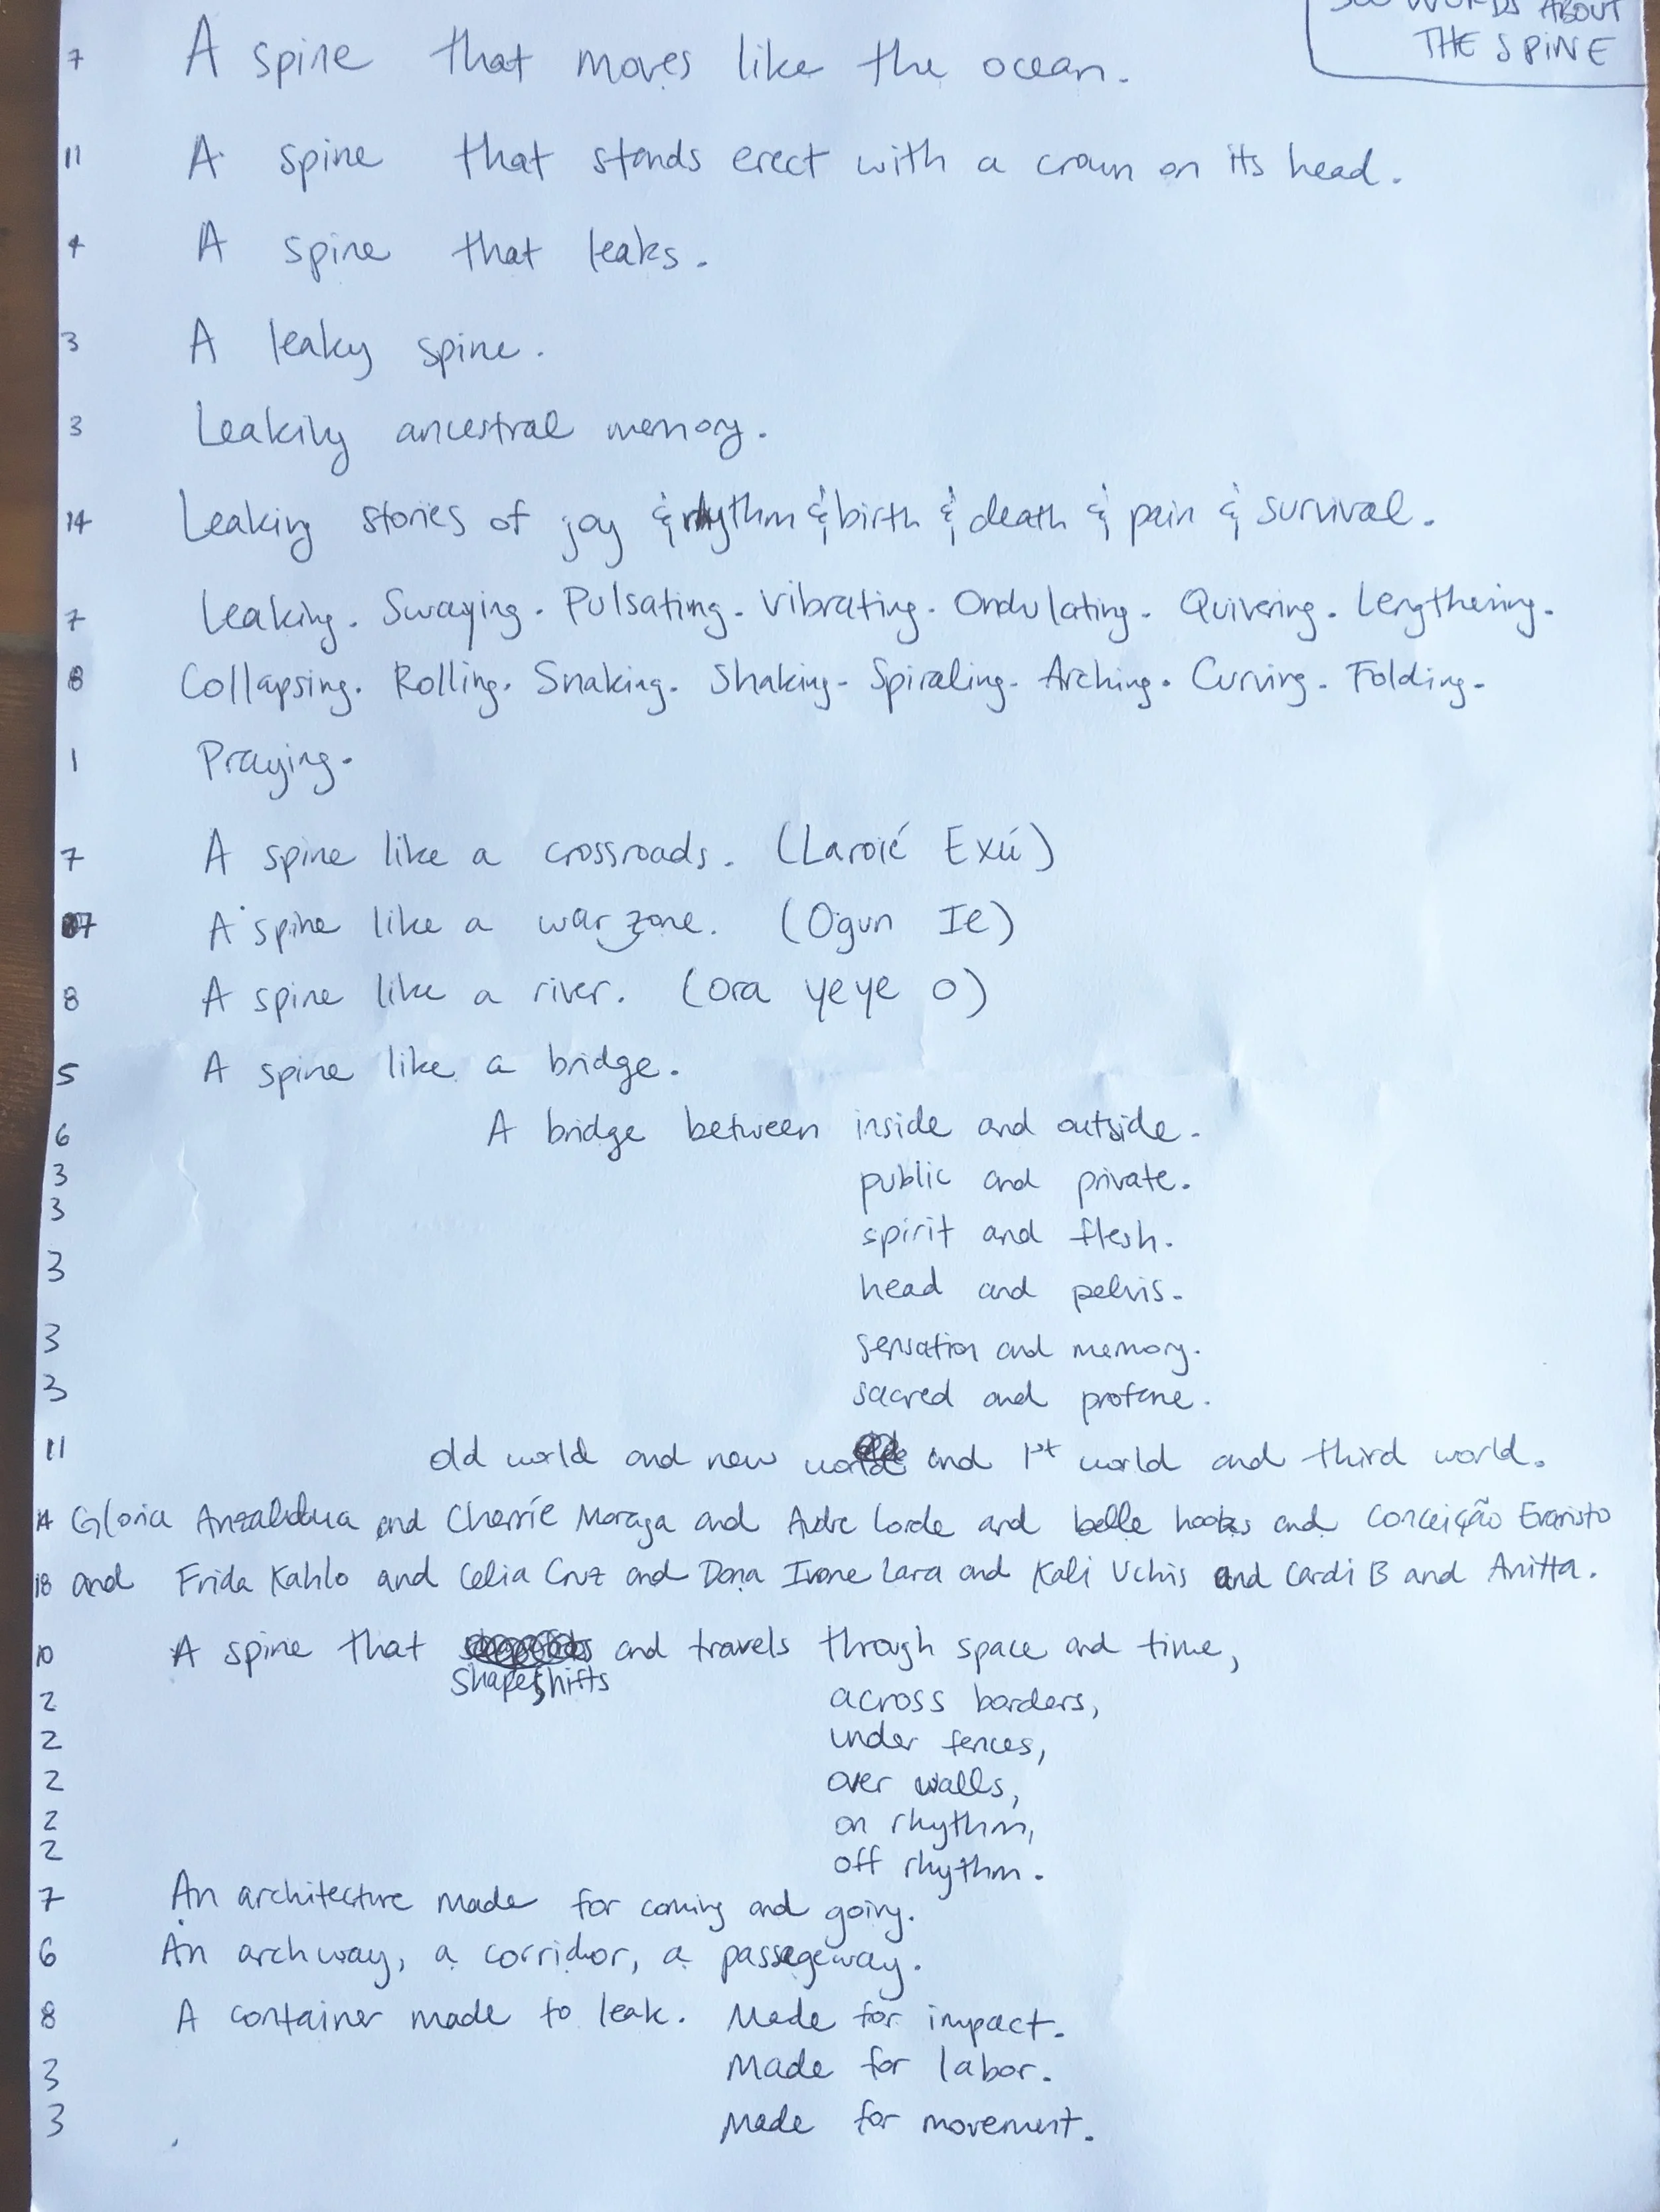 WORDS ABOUT
THE SPINE
7 A spine that moves like the ocean.
11 A spine that stands erect with a crown on its head.
4 A spine that leaks.
3 A leaky spine.
3 Leaking ancestral memory.
14 Leaking stories of joy & rhythm & birth & death & pain & survival.
7 Leaking. Swaying. Pulsating. Vibrating. Ondulating. Quivering. Lengthening.
8 Collapsing. Rolling. Snaking. Shaking. Spiraling. Arching. Curving. Folding.
1 Praying.
7 A spine like a crossroads. (Laroié Exú)
7 A spine like a war zone. (Ogun Ie)
8 A spine like a river. (Ora yeye o)
5 A spine like a bridge.
6 A bridge between inside and outside.
3 public and private.
3 spirit and flesh.
3 head and pelvis.
3 sensation and memory.
3 sacred and profane.
11 old world and new world and 1st world and third world.
14 Gloria Anzaldua and Cherríe Moraga and Audre Lorde and belle hooks and Conceição Evaristo
18 and Frida Kahlo and Celia Cruz and Dona Ivone Lara and Kali Uchis and Cardi B and Anitta.
10 A spine that shapeshifts and travels through space and time,
2 across borders,
2 under fences,
2 over walls,
2 on rhythm,
2 off rhythm.
7 An architecture made for coming and going.
6 An archway, a corridor, a passageway.
8 A container made to leak. Made for impact.
3 Made for labor.
3 Made for movement.